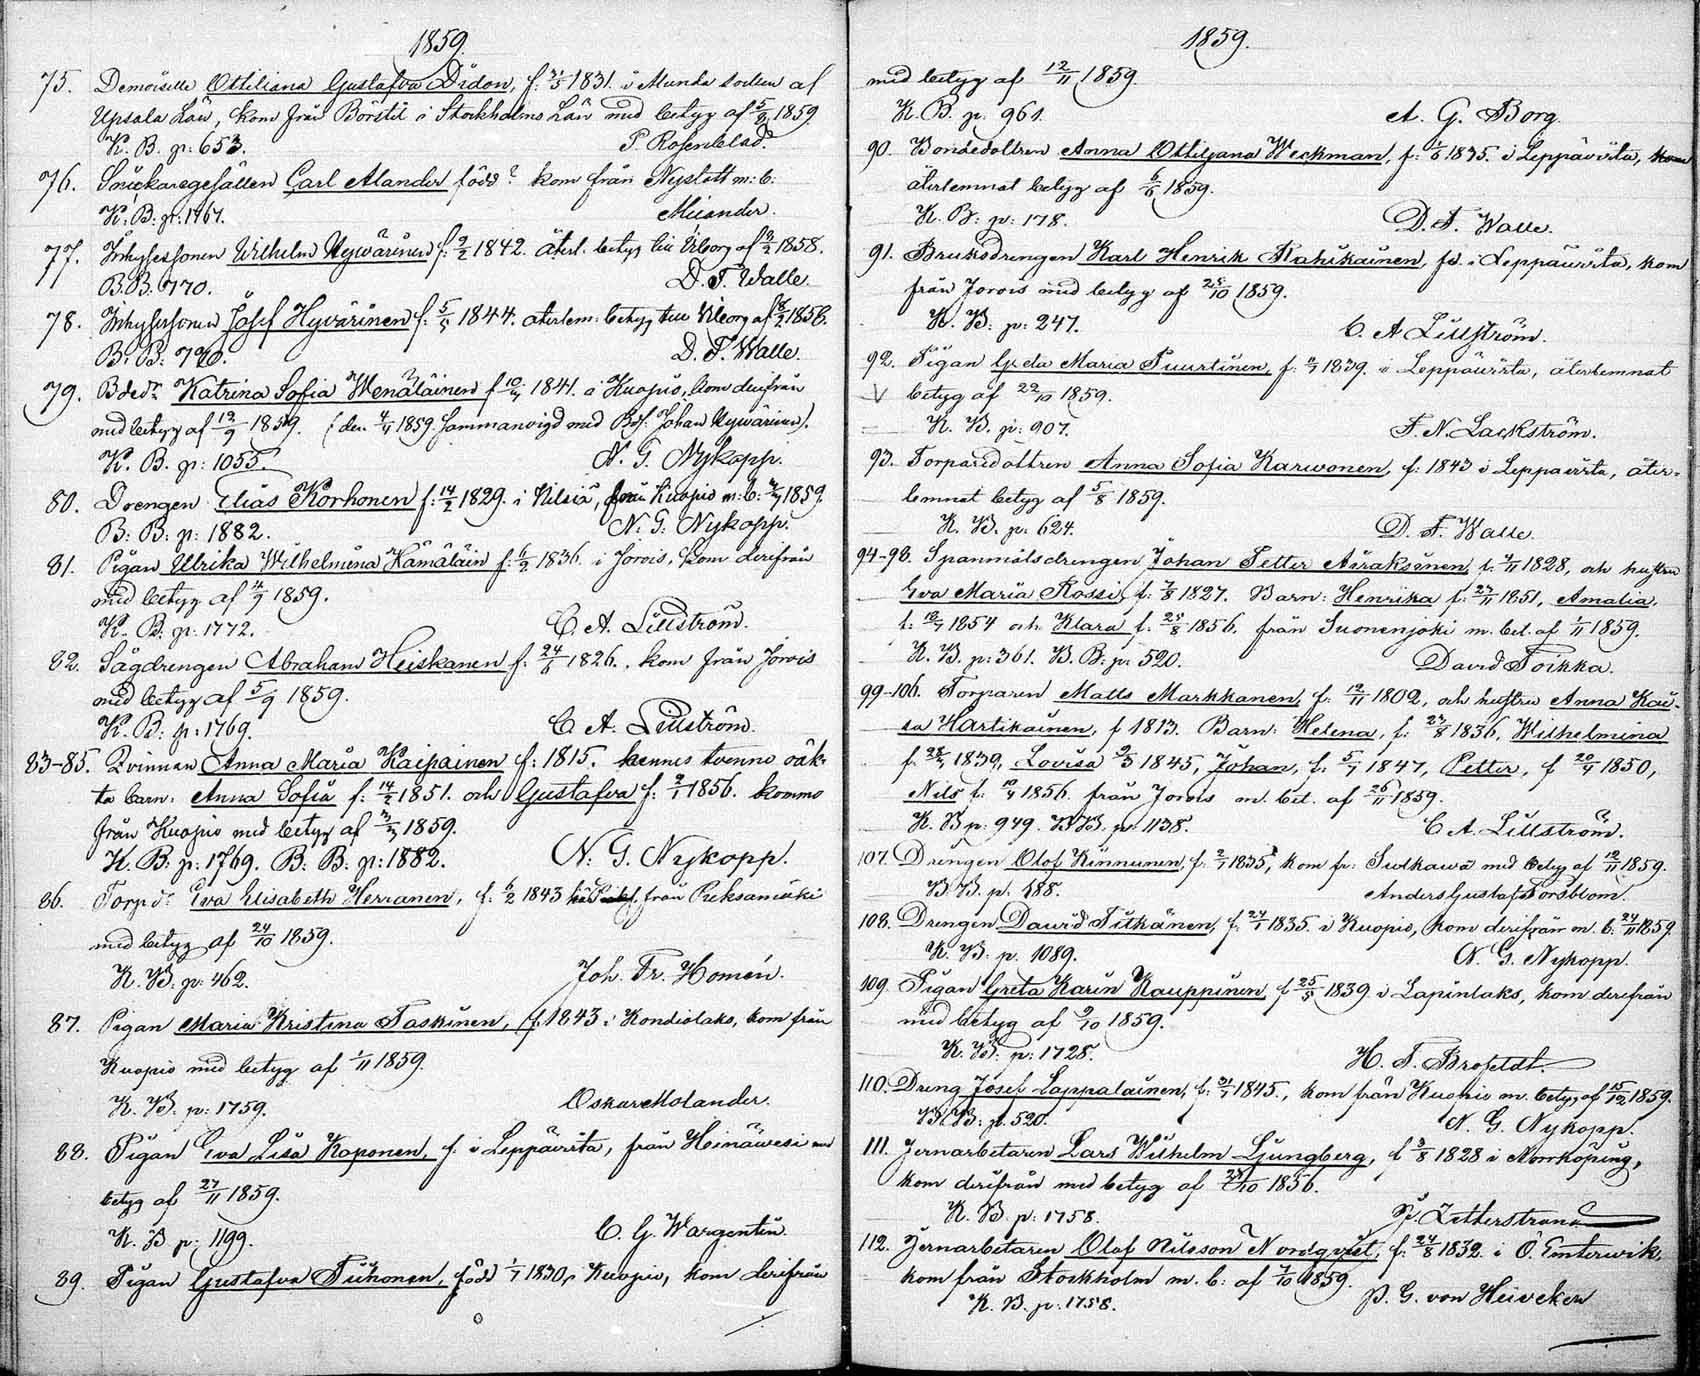 1859.
75. Demoiselle Ottiliana Gustafva Didon, f. 31/5 1831. i Munda socken af
Upsala Län, kom från Börstil i Stockholms Län med betyg af 1859.
K. B. p: 653. P. Rosenblad.
76. Snickaregesällen Carl Alander född? kom från Nystatt m: b:
K: B: p: 1767. Micander.
77. Inhysessonen Wilhelm Hyvärinen f: 9/2 1842. återl. betyg till Viborg af 1858.
B. B. 770. D. F. Walle.
78. Inhysessonen Josef Hyvärinen f: 5/5 1844. återlem: betyg till Viborg af 1858.
B: B: 770. D. F. Walle.
79. Bdedr Katrina Sofia Wenäläinen f 1841. i Kuopio, kom derifrån
med betyg af 12/9 1859. (den 4/11 1859 sammanvigd med Bds. Johan Hyvärinen).
K. B. p: 1055. N. G. Nykopp.
80. Drengen Elias Korhonen f: 14/2 1829. i Nilsiä, från Kuopio m: b: 1859.
B: B: p: 1882. N: G: Nykopp.
81. Pigan Ulrika Wilhelmina Hämäläin f: 6/2 1836. i Jorois, kom derifrån
med betyg af 1859.
K. B: p: 1772. C. A. Lillström.
82. Sågdrengen Abraham Heiskanen f: 24/6 1826., kom från Jorois
med betyg af 5/9 1859.
K. B: p: 1769. C. A. Lillström.
83-85. Qvinnan Anna Maria Kaipainen f: 1815. hennes tvenne oäk-
ta barn: Anna Sofia f: 14/2 1851. och Gustafva f: 1856. komma
från Kuopio med betyg af 1859.
K. B: p: 1769. B: B: p: 1882. N: G. Nykopp.
86. Torpd: Eva Elisabeth Herranen, f. 6/2 1843 från Pieksamäki
med betyg af 24/10 1859.
K. B: p: 462. Joh. Fr. Homén.
87. Pigan Maria Kristina Taskinen, f. 1843 i Kondiolaks, kom från
Kuopio med betyg af 1/11 1859.
K. B: p: 1759. Oskar Molander.
88. Pigan Eva Lisa Koponen, f. i Leppävirta, från Heinävesi med
betyg af 27/11 1859.
K. B p: 1199. C. G. Wargentin.
89. Pigan Gustafva Tiihonen, född 1/7 1830, i Kuopio, kom derifrån
1859.
med betyg af 12/11 1859.
K. B. p: 961. A. G. Borg.
90. Bondedottren Anna Ottiljana Weckman, f: 1835. i Leppävirta,
återlemnat betyg af 6/6 1859.
K. B: p: 178. D. F. Walle.
91. Bruksdrengen Karl Henrik Rahikainen, fd. i Leppävirta, kom
från Jorois med betyg af 28/10 1859.
K. B: p: 247. C. A Lillström.
92. Pigan Greta Maria Tuurtinen, f: 1839 i Leppävirta, återlemnat
betyg af 22/10 1859.
K. B. p: 907. F. N. Lackström.
93. Torparedottren Anna Sofia Karwonen, f: 1843 i Leppävirta, åter-
lemnat betyg af 5/8 1859.
K. B. p. 624. D. F. Walle.
94-98. Spanmålsdrengen Johan Petter Airaksinen, f. 4/11 1828, och hustru
Eva Maria Rossi, f: 7/8 1827. Barn: Henrika f: 27/11 1851, Amalia,
f: 1854 och Klara f: 25/8 1856. från Suonenjoki m. bet. af 1/11 1859.
K. B. p: 361. B. B: p: 520. David Toikka.
99-106. Torparen Matts Markkanen, f: 12/11 1802, och hustru Anna Kai-
sa Hartikainen, f 1813. Barn: Helena, f: 27/8 1836, Wilhelmina
f. 1839, Lovisa 9/3 1845, Johan, f: 5/7 1847, Petter, f 1850,
Nils f. 1856. från Jorois m. bet. af 26/11 1859.
K. B p: 949. B. B. p: 1138. C. A. Lillström.
107. Drengen Olof Kinnunen, f: 1835, kom fr: Sulkawa med betyg af 12/11 1859.
B. B. p. 188. Anders Gustaf Forsblom.
108. Drengen David Pitkänen, f: 1835. i Kuopio, kom derifrån m. b. 24/11 1859.
K. B. p. 1089. N. G. Nykopp.
109. Pigan Greta Karin Kauppinen f 25/5 1839 i Lapinlaks, kom derifrån
med betyg af 9/10 1859.
K. B: p: 1728. H. F. Brofeldt.
110. Dreng Josef Lappalainen, f: 1845., kom från Kuopio m. betyg af 15/12 1859.
B. B: p. 520. N. G. Nykopp.
111. Jernarbetaren Lars Wilhelm Ljungberg, f 3/8 1828 i Norrköping,
kom derifrån med betyg af 1856.
K. B. p: 1758. Zetterstrand
112. Jernarbetaren Olof Nilsson Nordqvist, f: 24/8 1832. i Ö. Emtervik,
kom från Stockholm m. b: af 7/10 1859.
K. B. p: 1758. P. G. von Heiveken